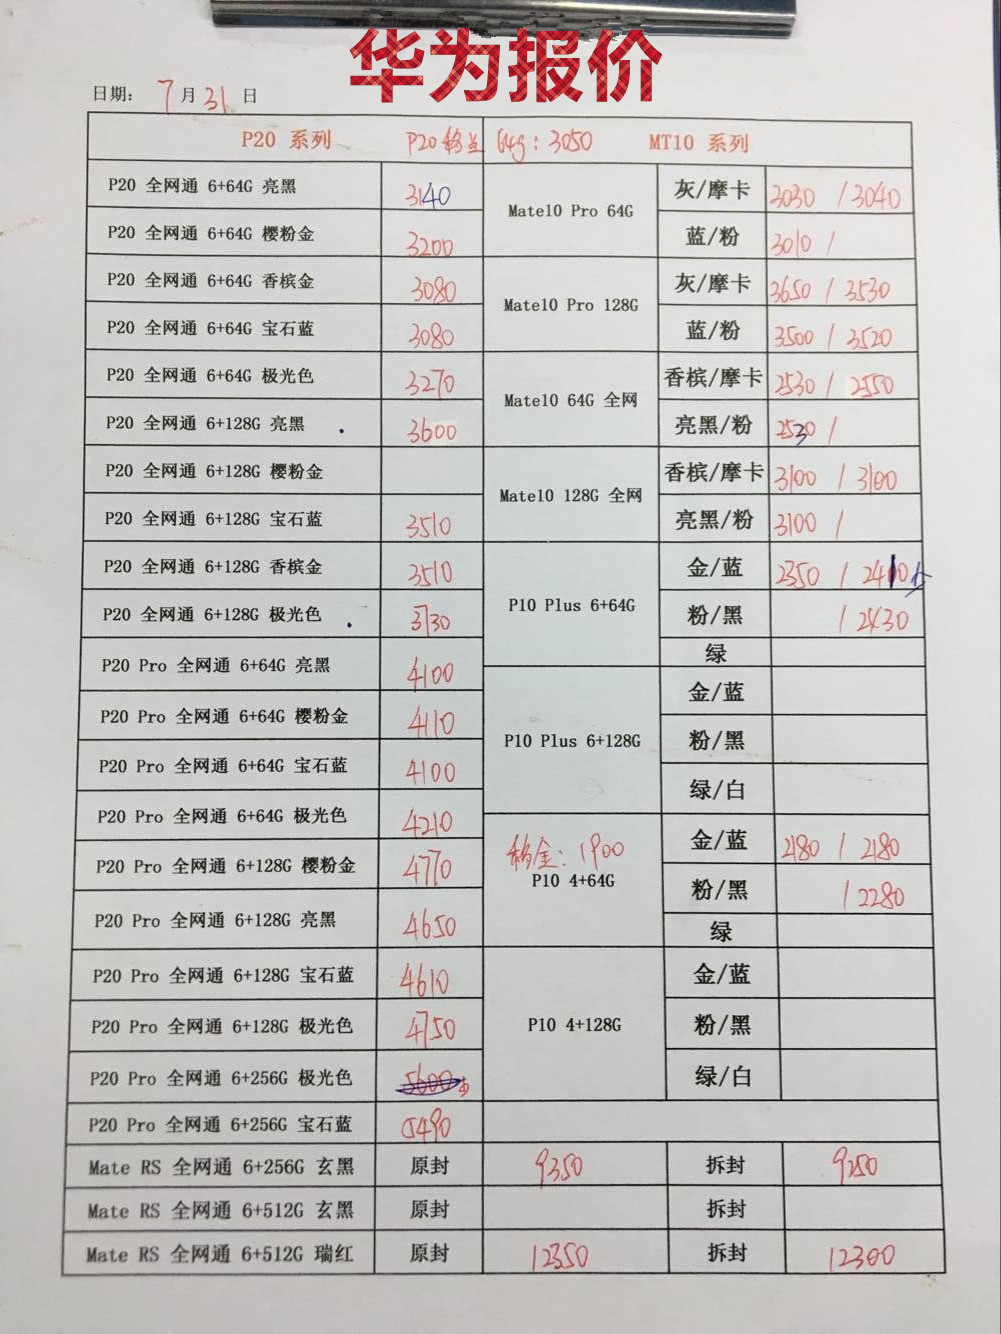 华为报价
日期: 7月31日
P20 系列 P20移兰 64g: 3050 MT10 系列
P20 全网通 6+64G 亮黑 3140
P20 全网通 6+64G 樱粉金 3200
P20 全网通 6+64G 香槟金 3080
P20 全网通 6+64G 宝石蓝 3080
P20 全网通 6+64G 极光色 3270
P20 全网通 6+128G 亮黑 3600
P20 全网通 6+128G 樱粉金
P20 全网通 6+128G 宝石蓝 3510
P20 全网通 6+128G 香槟金 3510
P20 全网通 6+128G 极光色 3730
P20 Pro 全网通 6+64G 亮黑 4100
P20 Pro 全网通 6+64G 樱粉金 4110
P20 Pro 全网通 6+64G 宝石蓝 4100
P20 Pro 全网通 6+64G 极光色 4210
P20 Pro 全网通 6+128G 樱粉金 4770
P20 Pro 全网通 6+128G 亮黑 4650
P20 Pro 全网通 6+128G 宝石蓝 4610
P20 Pro 全网通 6+128G 极光色 4750
P20 Pro 全网通 6+256G 极光色
P20 Pro 全网通 6+256G 宝石蓝 5490
Mate10 Pro 64G
灰/摩卡 3030 / 3040
蓝/粉 3010 /
Mate10 Pro 128G
灰/摩卡 3650 / 3530
蓝/粉 3500 / 3520
Mate10 64G 全网
香槟/摩卡 2530 / 2550
亮黑/粉 2530 /
Mate10 128G 全网
香槟/摩卡 3100 / 3100
亮黑/粉 3100 /
P10 Plus 6+64G
金/蓝 2350 / 2410
粉/黑 / 2430
绿
P10 Plus 6+128G
金/蓝
粉/黑
绿/白
移金: 1900
P10 4+64G
金/蓝 2180 / 2180
粉/黑 / 2280
绿
P10 4+128G
金/蓝
粉/黑
绿/白
Mate RS 全网通 6+256G 玄黑 原封 9350 拆封 9250
Mate RS 全网通 6+512G 玄黑 原封 拆封
Mate RS 全网通 6+512G 瑞红 原封 12350 拆封 12300